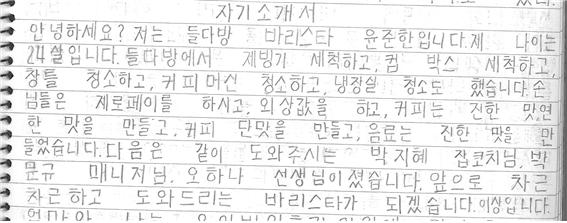 자기소개서
안녕하세요? 저는 들다방 바리스타 윤준한입니다. 제 나이는
24살입니다. 들다방에서 제빙기 세척하고, 컵 박스 세척하고,
창틀 청소하고, 커피 머신 청소하고, 냉장실 청소도 했습니다. 손
님들은 제로페이를 하시고, 외상값을 하고, 커피는 진한 맛 연
한 맛을 만들고, 커피 단맛을 만들고, 음료는 진한 맛을 만
들었습니다. 다음은 같이 도와주시는 박지혜 잡코치님, 박
문규 매니저님. 오하나 선생님이 졌습니다. 앞으로 차근
차근하고 도와드리는 바리스타가 되겠습니다. 이상입니다